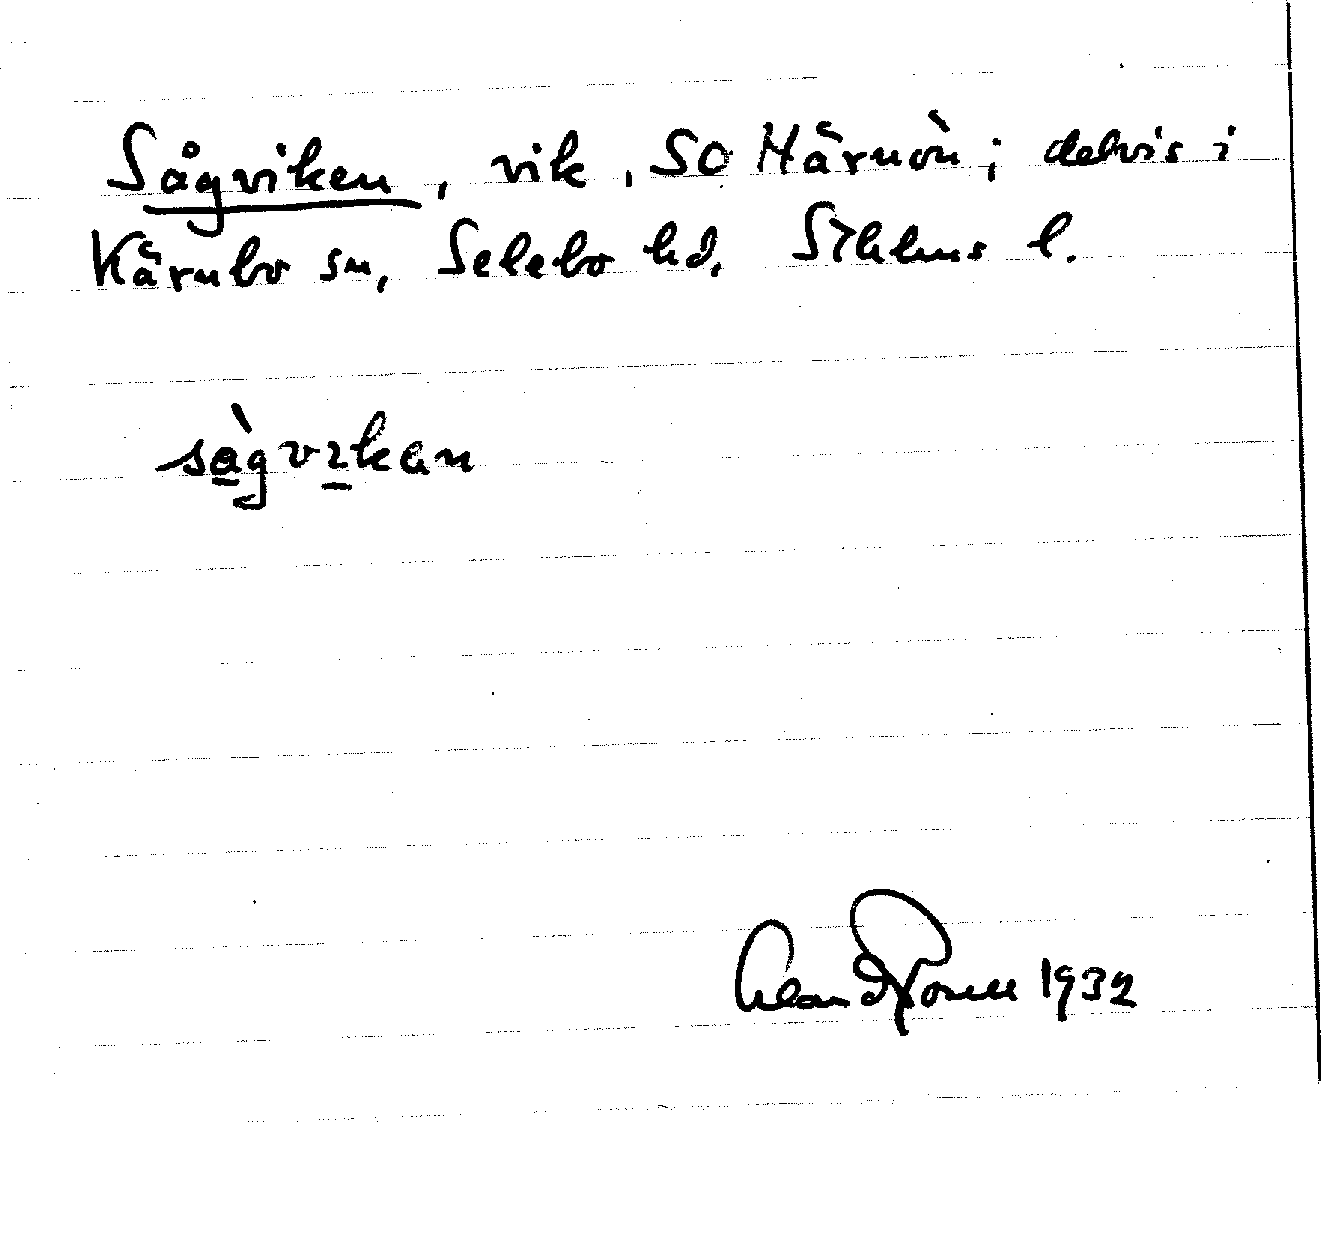 Sågviken, vik, SO Härnön; delvis i
Kärnbo sn, Selebo hd, Sthlms l.
sàgvikan
1932